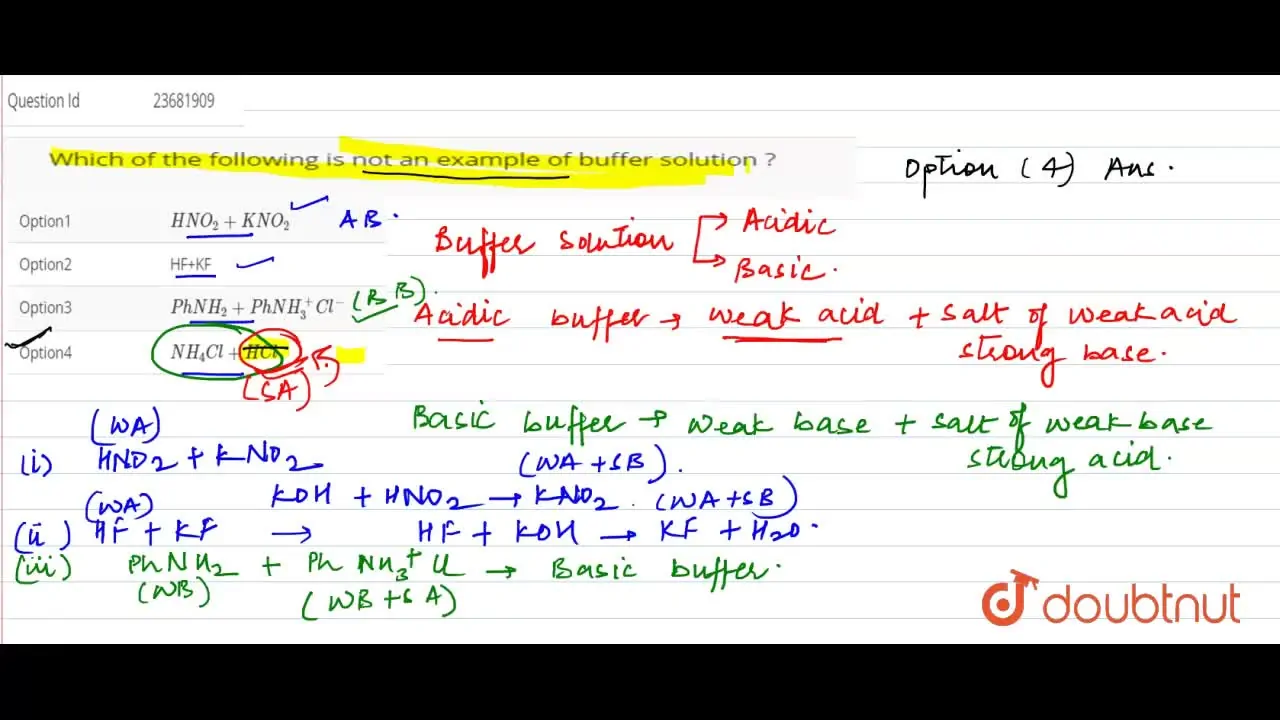 Question Id 23681909
Which of the following is not an example of buffer solution ?
Option (4) Ans.
Option1 HNO₂ + KNO₂ AB.
Option2 HF+KF
Option3 PhNH₂ + PhNH₃⁺Cl⁻ (BB).
Option4 NH₄Cl + HCl
(SA)
Buffer solution → Acidic
→ Basic.
Acidic buffer → weak acid + salt of weak acid
strong base.
Basic buffer → weak base + salt of weak base
strong acid.
(WA)
(i) HNO₂ + KNO₂ (WA + SB).
KOH + HNO₂ → KNO₂. (WA+SB)
(WA)
(ii) HF + KF → HF + KOH → KF + H₂O.
(iii) PhNH₂ + PhNH₃⁺Cl → Basic buffer.
(WB) (WB + SA)
doubtnut